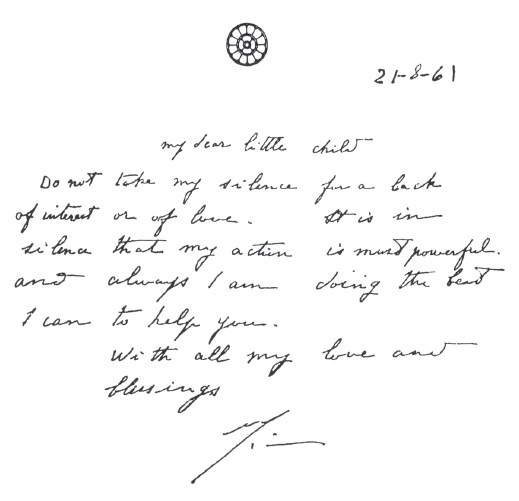 21-8-61
my dear little child
Do not take my silence for a lack
of interest or of love. It is in
silence that my action is most powerful.
and always I am doing the best
I can to help you.
With all my love and
blessings